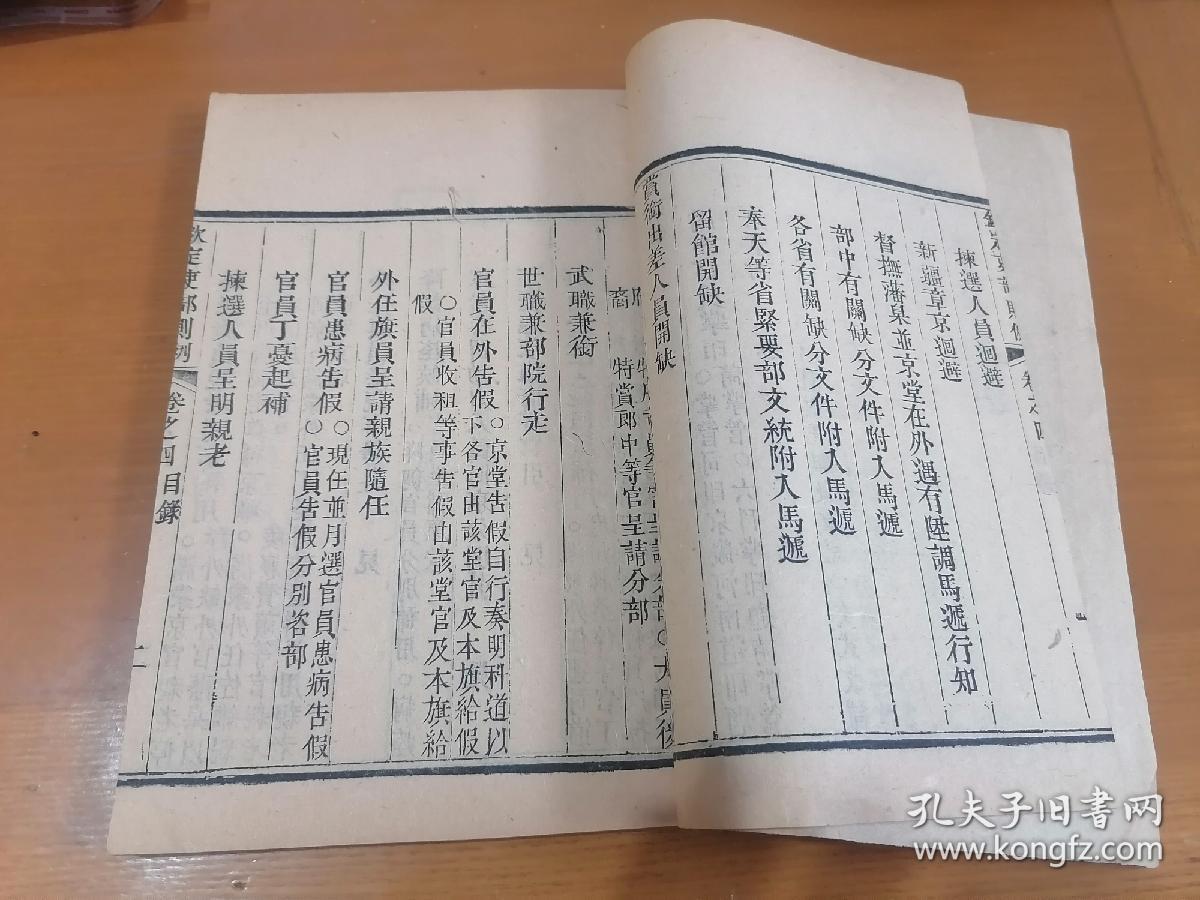 卷之四
揀選人員迴避
新疆章京迴避
督撫藩臬並京堂在外遇有陞調馬遞行知
部中有關缺分文件附入馬遞
各省有關缺分文件附入馬遞
奉天等省緊要部文統附入馬遞
留館開缺
賞銜出差人員開缺
特賞郎中等官呈請分部
武職兼銜
世職兼部院行走
官員在外告假○京堂告假自行奏明科道以
下各官由該堂官及本旗給假
○官員收租等事告假由該堂官及本旗給
假
外任旗員呈請親族隨任
官員患病告假○現任並月選官員患病告假
○官員告假分別咨部
官員丁憂起補
揀選人員呈明親老
欽定吏部則例
卷之四目錄
二
孔夫子旧书网
www.kongfz.com